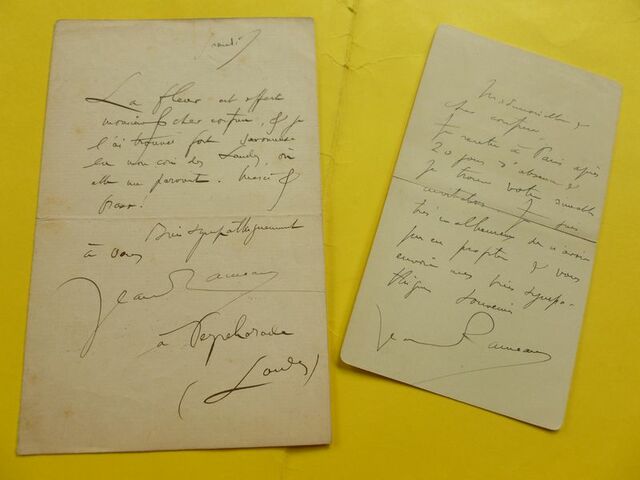 La fleur est offert
monsieur & cher confrère, & je
l'ai trouvée fort savoureuse
en mon coin des Landes, où
elle me parvint. Merci &
bravo!
Bien sympathiquement
à vous
Jean Rameau
à Peyrehorade
(Landes)
Mademoiselle &
cher confrère,
Je rentre à Paris après
20 jours d'absence &
je trouve votre aimable
invitation. Je suis
très malheureux de n'avoir
pu en profiter & vous
envoie mes bien sympa-
thiques souvenirs
Jean Rameau